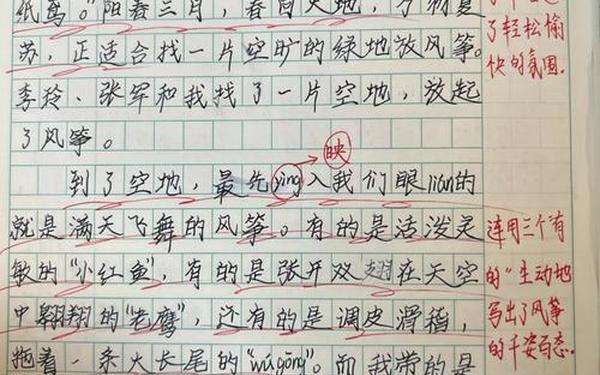 纸鸢。"阳春三月，春回大地，万物复
苏，正适合找一片空旷的绿地放风筝。
李玲、张军和我找了一片空地，放起
了风筝。
映
到了空地，最先ying入我们眼lián的
就是满天飞舞的风筝。有的是活泼灵
敏的"小红鱼"，有的是张开双翅在天空
中翱翔的"老鹰"，还有的是调皮滑稽，
拖着一条大长尾的"wú gōng"。而我带的是
了轻松愉
快的氛围。
连用三个"有
的"生动地
写出了风筝
的千姿百态。